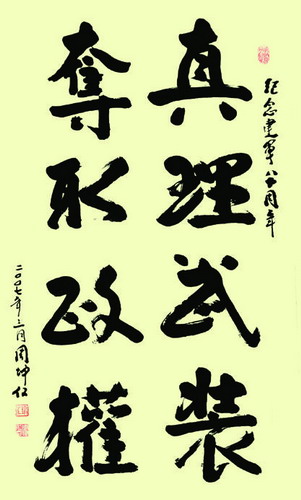 纪念建军八十周年
真理武装
夺取政權
二〇〇七年三月周坤仁